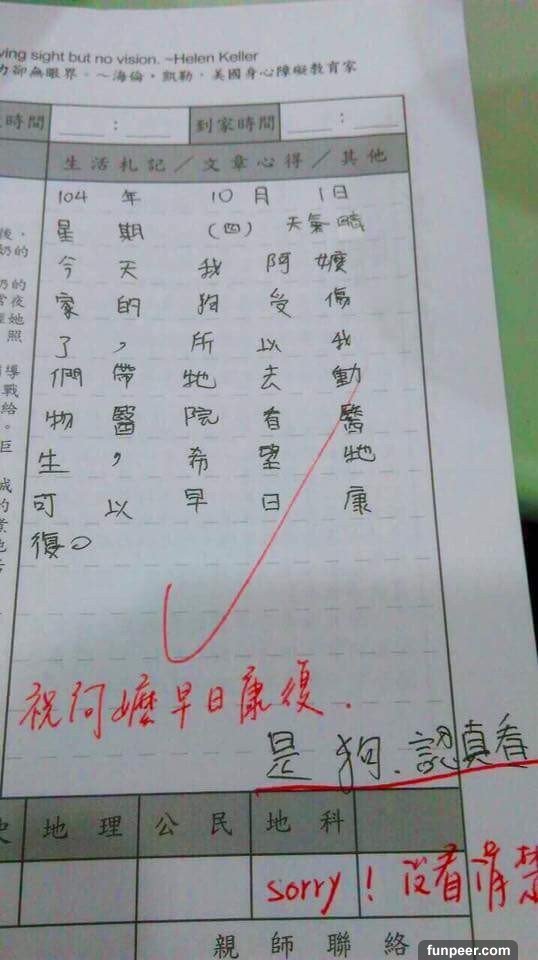 ving sight but no vision. ~Helen Keller
力卻無眼界。～海倫・凱勒，美國身心障礙教育家
時間 ： 到家時間 ：
生活札記／文章心得／其他
104 年 10 月 1日
星期（四）天氣晴
今天我阿嬤
家的狗受傷
了，所以我
們帶牠去動
物醫院看醫
生，希望牠
可以早日康
復。
祝阿嬤早日康復.
是狗、認真看
地理 公民 地科
sorry！沒看清楚
親師聯絡
後，
奶的
奶的
常後
她
照
導
戰
給
。
巨
成
的
業
funpeer.com